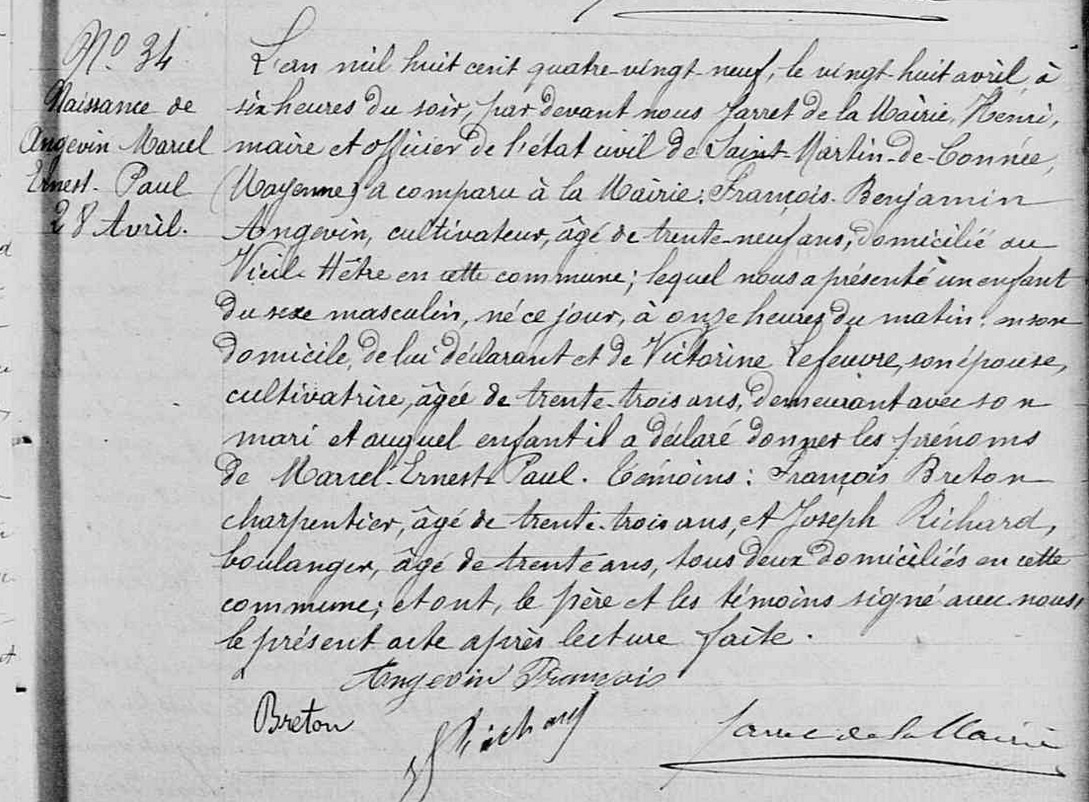 No 34.
Naissance de
Angevin Marcel
Ernest Paul
28 Avril.
L'an mil huit cent quatre-vingt-neuf, le vingt-huit avril, à
six heures du soir, par devant nous Jarret de la Mairie, Henri,
maire et officier de l'état civil de Saint-Martin-de-Connée,
(Mayenne) a comparu à la Mairie: François-Benjamin
Angevin, cultivateur, âgé de trente-neuf ans, domicilié au
Vieil-Hêtre en cette commune; lequel nous a présenté un enfant
du sexe masculin, né ce jour, à onze heures du matin, en son
domicile, de lui déclarant et de Victorine Lefeuvre, son épouse,
cultivatrice, âgée de trente-trois ans, demeurant avec son
mari et auquel enfant il a déclaré donner les prénoms
de Marcel-Ernest-Paul. Témoins: François Breton
charpentier, âgé de trente-trois ans, et Joseph Richard,
boulanger, âgé de trente ans, tous deux domiciliés en cette
commune; et ont, le père et les témoins signé avec nous
le présent acte après lecture faite.
Angevin François
Breton
Richard
Jarret de la Mairie